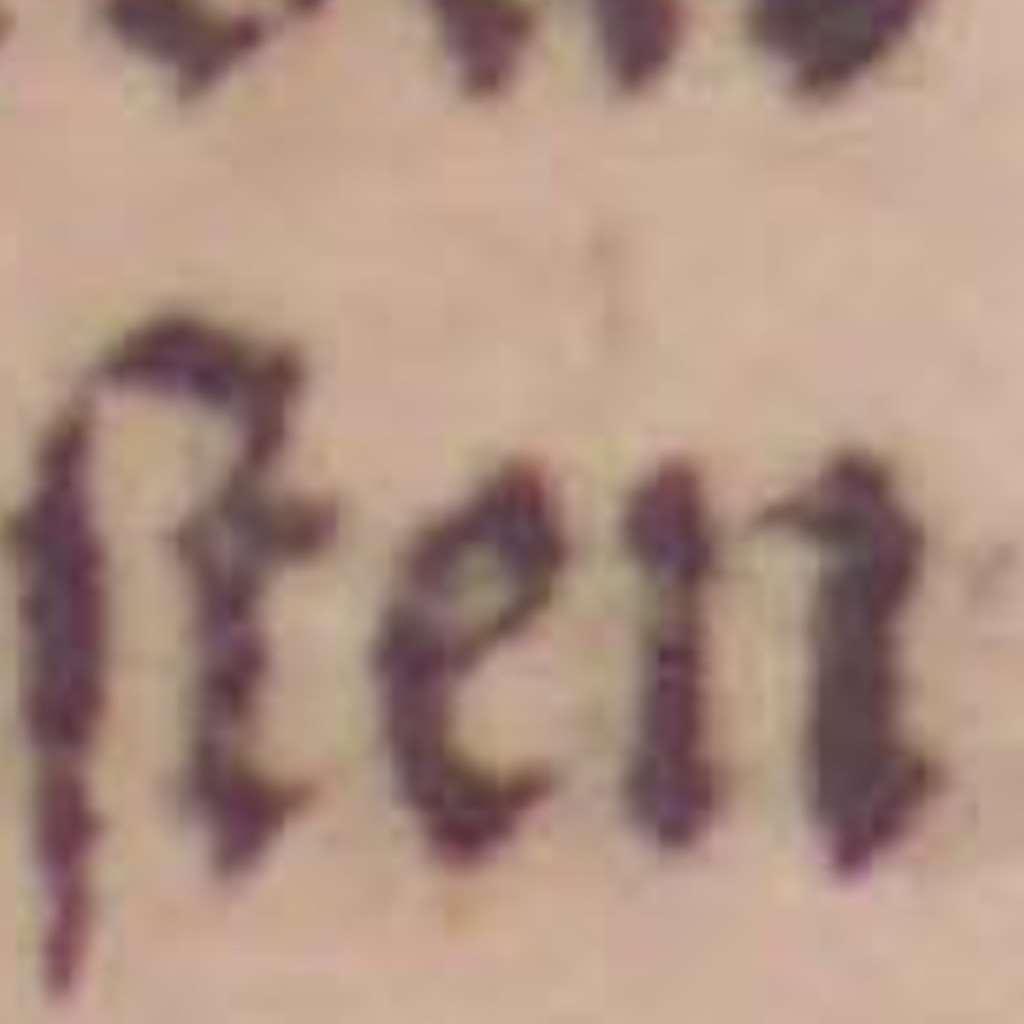 ſten